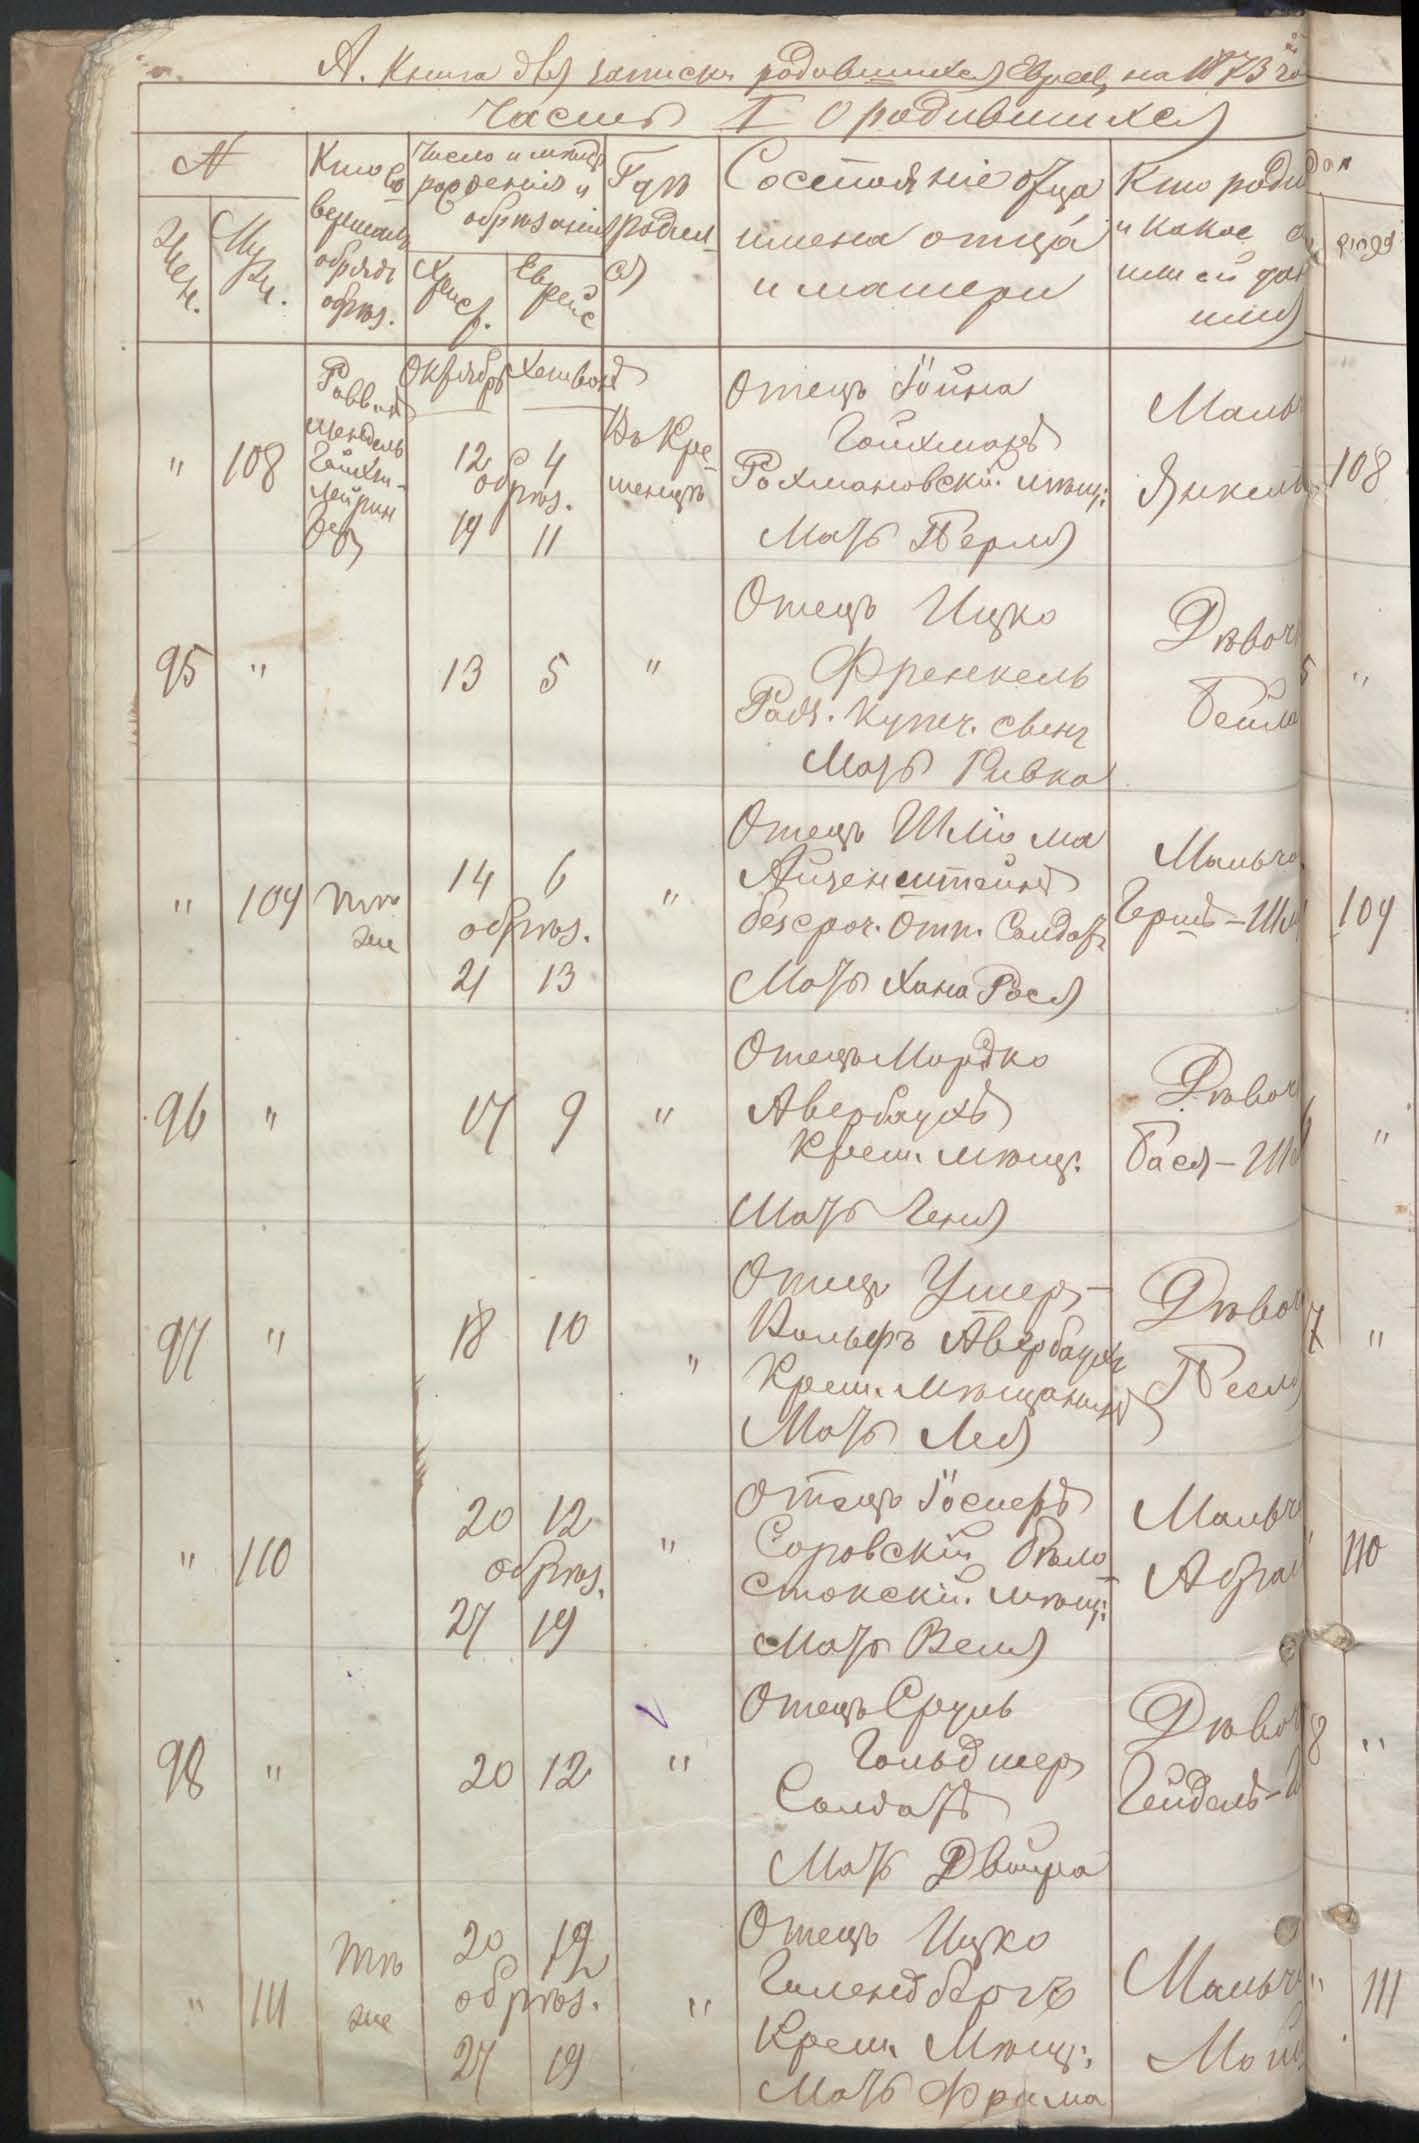 А. Книга для записки родившихся Евреевъ на 1873 го
Часть I О родившихся
№
Жен.
Муж.
Кто со
вершалъ
обрядъ
обрѣз.
Число и мѣсяцъ
рожденія и
обрѣзанія
Христ.
Еврейс
Гдѣ
родил
ся
Состояніе отца
имена отца
и матери
Кто роди
и какое
или ей дан
имя
" 108
Раввинъ
Мендель
Октябрь Хешвонъ
12 4
обрѣз.
19 11
Въ Кре-
менцѣ
Отецъ Іойна
Гойхманъ
Рохмановскій мѣщ:
Мать Перля
Мальч
Янкель
108
95 "
13 5
"
Отецъ Ицко
Френкель
Радз. Купеч. сынъ
Мать Ривка
Дѣвоч
Бейла
"
" 109
тотъ
же
14 6
обрѣз.
21 13
"
Отецъ Шліома
Айзенштейнъ
безсроч. Отп. Солдатъ
Мать Хана Рося
Мальч
Гершъ-Шл
109
96 "
17 9
"
Отецъ Мордко
Авербаухъ
Крем. мѣщ:
Мать Геня
Дѣвоч
Бася-Ш
"
97 "
18 10
"
Отецъ Ушеръ-
Вольфъ Авербаухъ
Крем. Мѣщанинъ
Мать Лея
Дѣвоч
Песля
7 "
" 110
20 12
обрѣз.
27 19
"
Отецъ Іосифъ
Соровскій Бѣло
стокскій мѣщ:
Мать Веля
Мальч
Абрам
110
98 "
20 12
"
Отецъ Сруль
Гольдшер
Солдатъ
Мать Двойра
Дѣвоч
Гейдель-
8 "
" 111
тотъ
же
20 12
обрѣз.
27 19
"
Отецъ Ицко
Гилендбергъ
Крем. Мѣщ:
Мать Фрима
Мальч
" 111